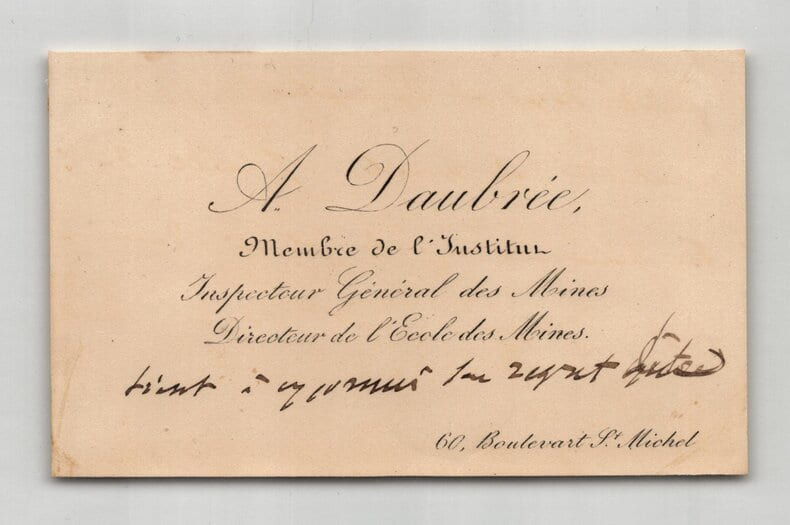 A. Daubrée,
Membre de l'Institut
Inspecteur Général des Mines
Directeur de l'Ecole des Mines.
tient à exprimer son regret
60, Boulevart St. Michel